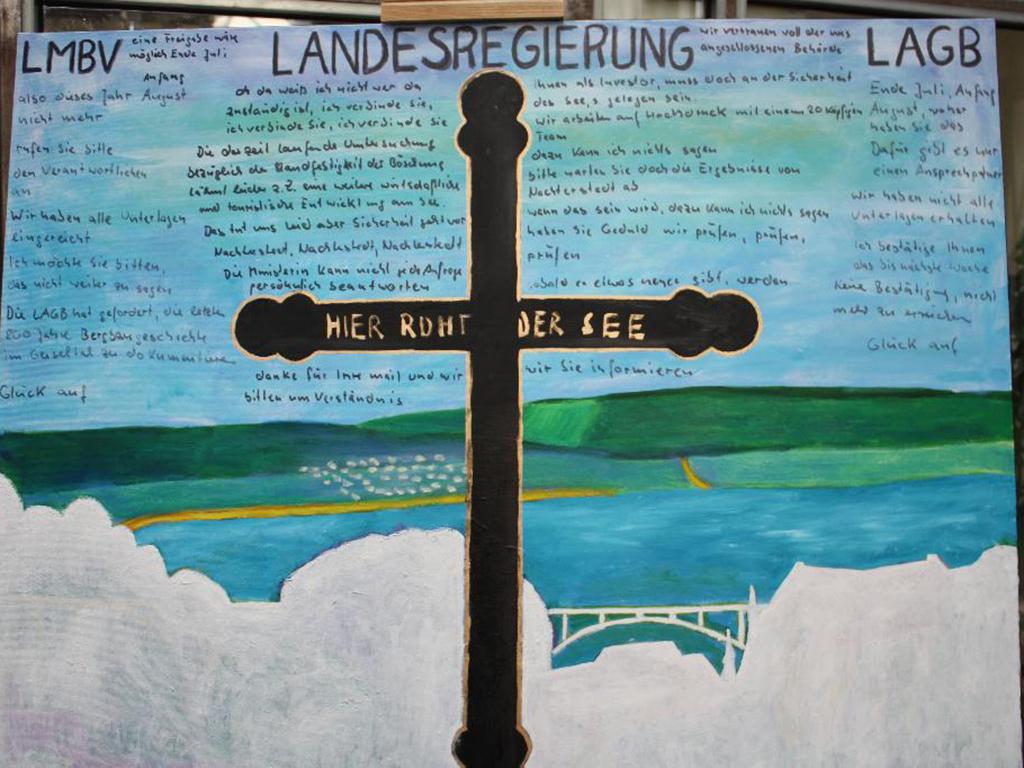 LMBV
eine Freigabe wäre
möglich Ende Juli
Anfang
also dieses Jahr August
nicht mehr
rufen Sie bitte
den Verantwortlichen
an
Wir haben alle Unterlagen
eingereicht
Ich möchte Sie bitten,
das nicht weiter zu sagen
Die LAGB hat gefordert, die letzten
200 Jahre Bergbaugeschichte
im Geiseltal zu dokumentieren
Glück auf
LANDESREGIERUNG
oh da weiß ich nicht wer da
zuständig ist, ich verbinde Sie,
ich verbinde Sie, ich verbinde Sie
Die derzeit laufende Untersuchung
bezüglich der Standfestigkeit der Böschung
lähmt leider z.Z. eine weitere wirtschaftliche
und touristische Entwicklung am See.
Das tut uns leid aber Sicherheit geht vor
Nachterstedt, Nachterstedt, Nachterstedt
Die Ministerin kann nicht jede Anfrage
persönlich beantworten
danke für Ihre mail und wir
bitten um Verständnis
wir vertrauen voll der uns
angeschlossenen Behörde
Ihnen als Investor, muss doch an der Sicherheit
des See,s gelegen sein.
Wir arbeiten auf Hochdruck mit einem 20 köpfigen
Team
dazu kann ich nichts sagen
bitte warten Sie doch die Ergebnisse von
Nachterstedt ab
wann das sein wird, dazu kann ich nichts sagen
haben Sie Geduld wir prüfen, prüfen,
prüfen
sobald es etwas neues gibt, werden
wir Sie informieren
LAGB
Ende Juli, Anfang
August, woher
haben Sie das
Dafür gibt es nur
einen Ansprechpartner
Wir haben nicht alle
Unterlagen erhalten
Ich bestätige Ihnen
das bis nächste Woche
Keine Bestätigung, nicht
mehr zu erreichen
Glück auf
HIER RUHT DER SEE